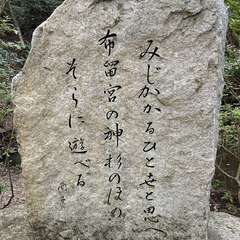 みじかかるひと世と思へ
布留宮の神杉のほの
そらに遊べる